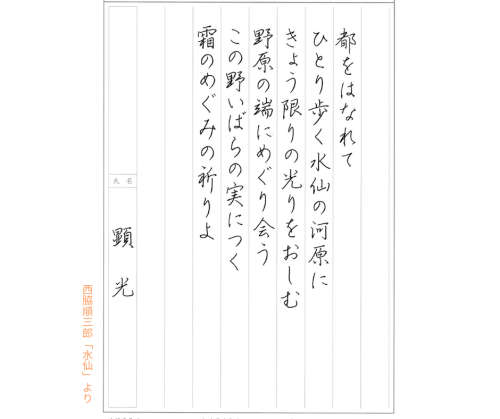 都をはなれて
ひとり歩く水仙の河原に
きょう限りの光りをおしむ
野原の端にめぐり会う
この野いばらの実につく
霜のめぐみの祈りよ
氏名
顕光
西脇順三郎「水仙」より